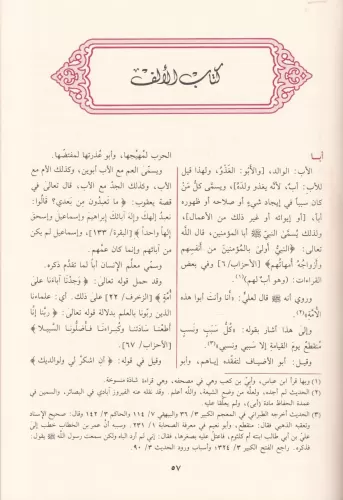 كتاب الألف
أبا
الأب: الوالد، [والأبُو: الغَذْو، ولهذا قيل
للأب: أبٌ، لأنّه يغذو ولده]، ويسمّى كلّ مَنْ
كان سبباً في إيجاد شيءٍ أو صلاحه أو ظهوره
أباً، [أو إيوائه أو غير ذلك من الأعمال]،
ولذلك يسمّى النبيّ ﷺ أبا المؤمنين، قال الله
تعالى: ﴿النبيُّ أولىٰ بالمؤمنينَ من أنفسِهم
وأزواجُهُ أمهاتُهم﴾ [الأحزاب/٦] وفي بعض
القراءات: (وهو أبٌ لهم)(١).
وروي أنه ﷺ قال لعليّ: «أنا وأنت أبوا هذه
الأمّة»(٢).
وإلى هذا أشار بقوله: «كلُّ سببٍ ونسبٍ
منقطعٌ يومَ القيامة إلا سببي ونسبي»(٣).
وقيل: أبو الأضياف لتفقّده إياهم، وأبو
الحرب لمُهيِّجها، وأبو عُذرتها لمفتضِّها.
ويسمّى العم مع الأب أبوين، وكذلك الأم مع
الأب، وكذلك الجدّ مع الأب، قال تعالى في
قصة يعقوب: ﴿ما تَعبدونَ من بَعدي؟ قالوا:
نعبدُ إلهك وإله آبائك إبراهيم وإسماعيل وإسحق
إلهاً واحداً﴾ [البقرة/١٣٣]، وإسماعيل لم يكن
من آبائهم وإنما كان عمَّهم.
وسمّي معلّم الإنسان أباً لما تقدّم ذكره.
وقد حمل قوله تعالى: ﴿وَجَدْنَا آبَاءَنا على
أُمّةٍ﴾ [الزخرف/٢٢] على ذلك. أي: علماءنا
الذين ربّونا بالعلم بدلالة قوله تعالى: ﴿ربَّنا إنّا
أطَعْنا سادَتَنا وكُبَراءَنا فأضلُّونا السبيلا﴾
[الأحزاب/ ٦٧].
وقيل في قوله: ﴿أن اشكُرْ لي ولوالديك﴾
(١) وبها قرأ ابن عباس، وأبيّ بن كعب وهي في مصحفه، وهي قراءة شاذة منسوخة.
(٢) الحديث لم أجده، ولعلّه من وضع الشيعة، والله أعلم. وقد نقله عنه الفيروز آبادي في البصائر، والسمين في
عمدة الحفاظ مادة (أبى)، ولم يعلّقا عليه.
(٣) الحديث أخرجه الطبراني في المعجم الكبير ٣/ والبيهقي ٧/ ١١٤ والحاكم ٣/ ١٤٢ وقال: صحيح الإسناد
وتعقبه الذهبي فقال: منقطع، وأبو نعيم في معرفة الصحابة ١/ ٢٣١. وسببه أنّ عمر بن الخطاب خطب إلى
عليّ بن أبي طالب ابنته أم كلثوم، فاعتلّ عليه بصغرها، فقال: إني لم أرد الباه ولكن سمعت رسول الله ﷺ يقول:
فذكره. راجع الفتح الكبير ٣/ ٣٢٤؛ وأسباب ورود الحديث ٣/ ٩٠.
٥٧